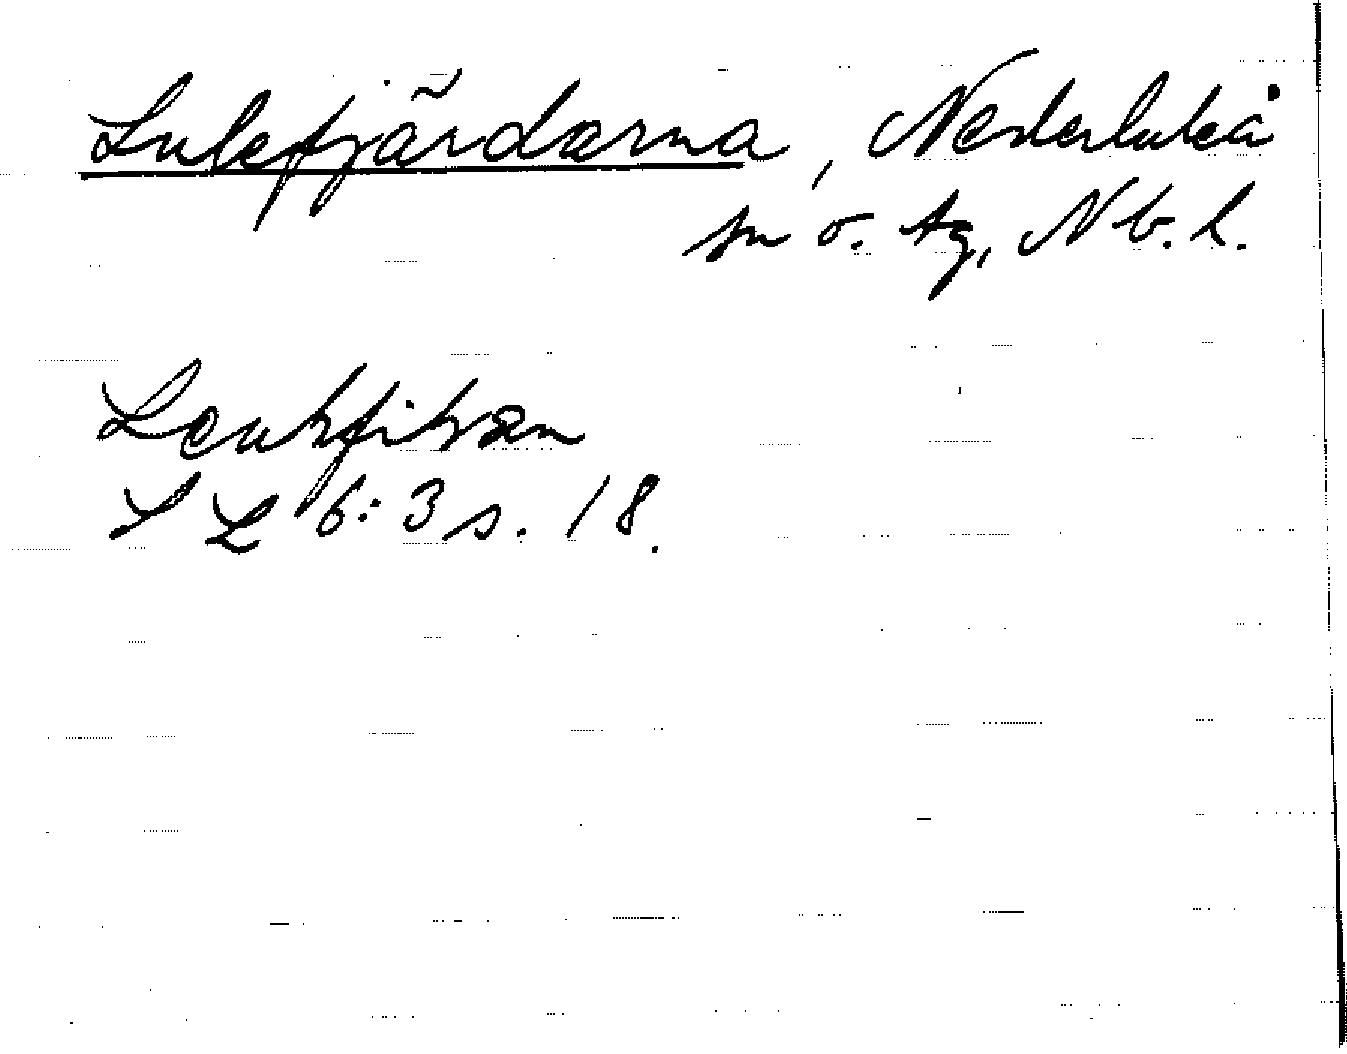 Lulefjärdarna, Nederluleå
sn o. tg, Nb. l.
S L 6:3 s. 18.